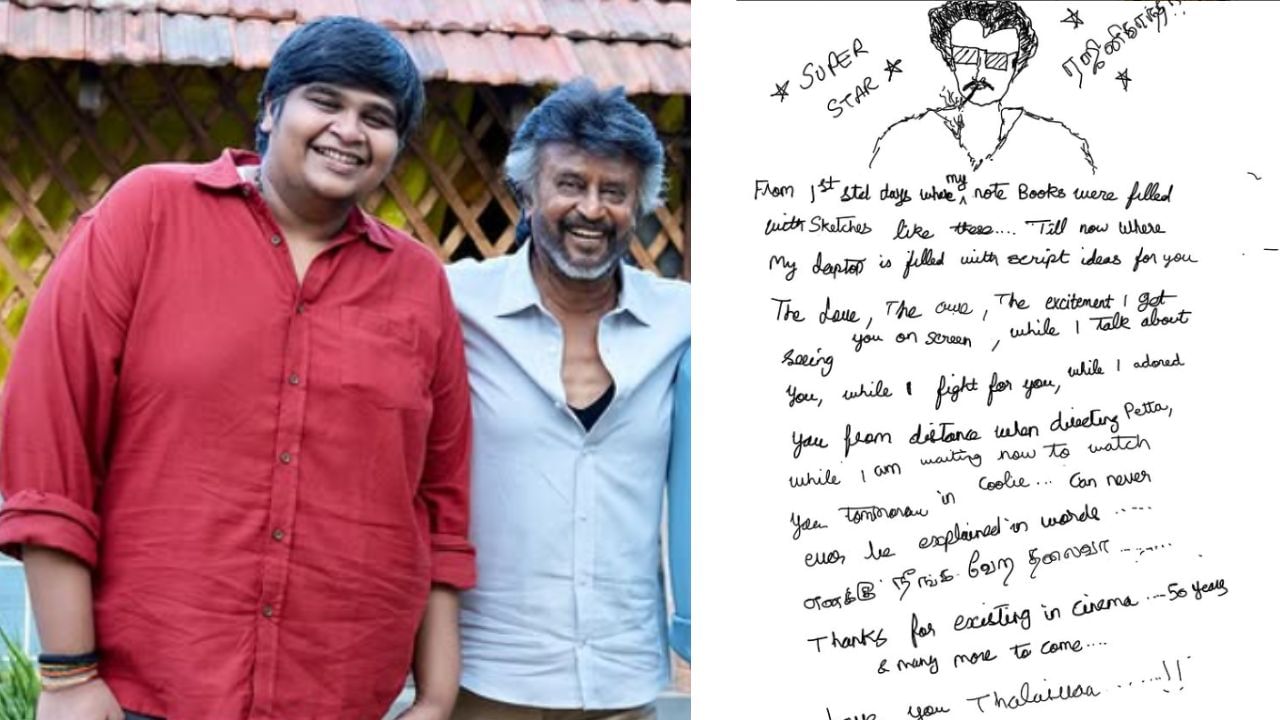 SUPER
STAR
ரஜினிகாந்த்!!
From 1st std days where my note Books were filled
with Sketches like these.... Till now where
My Laptop is filled with script ideas for you
The Love, The awe, The excitement I get
seeing you on screen, while I talk about
You, while I fight for you, while I adored
you from distance when directing Petta,
while I am waiting now to watch
You tommorow in Coolie... Can never
ever be explained in words .....
எனக்கு நீங்க வேற தலைவா ........
Thanks for existing in cinema ...50 years
& many more to come....
Love you Thalaivaa .....!!